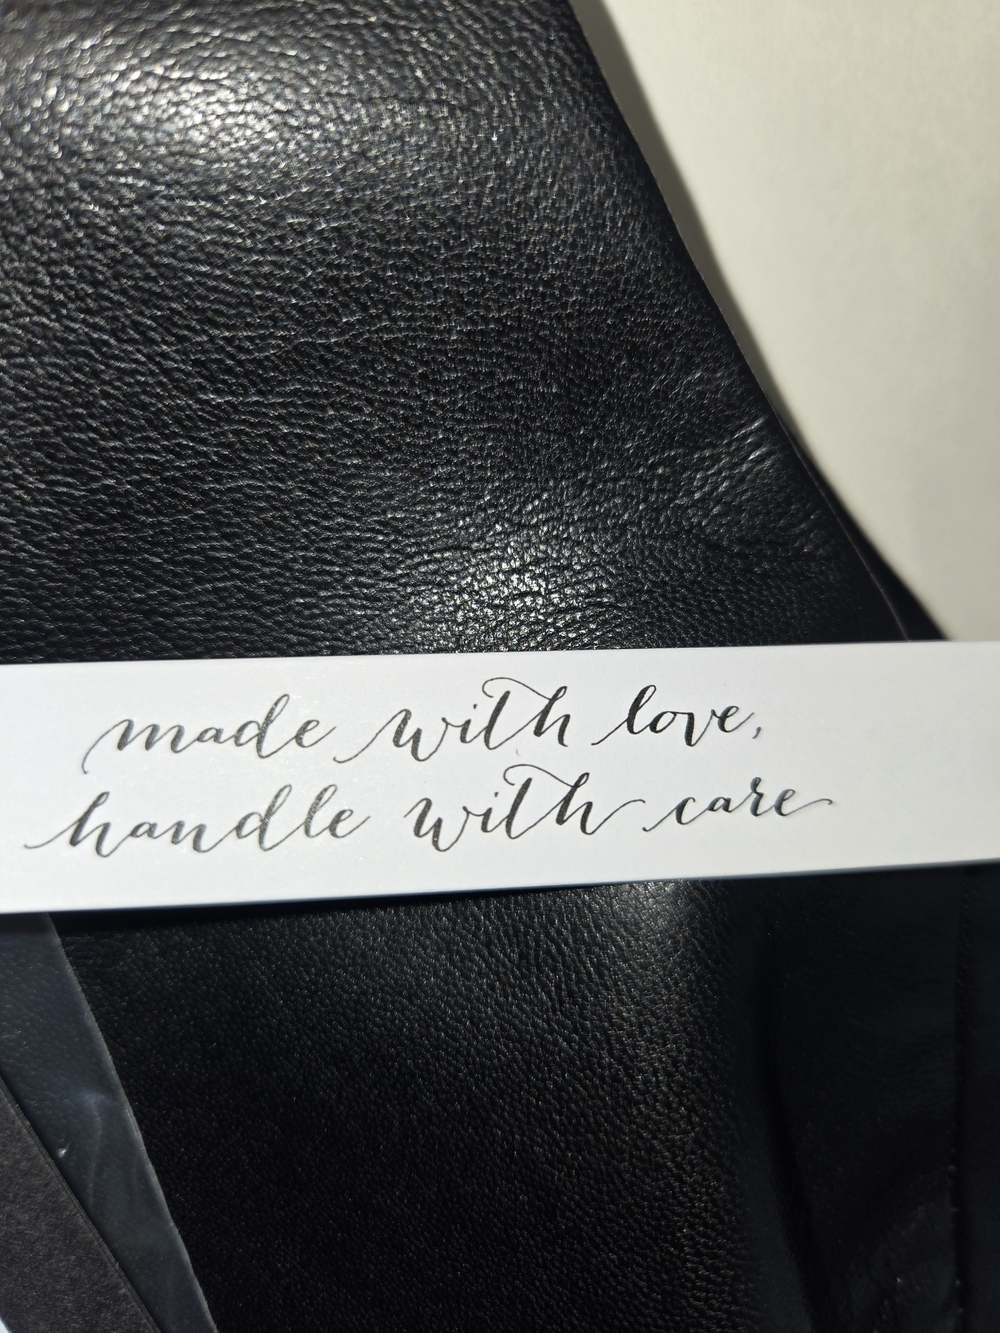 made with love,
handle with care